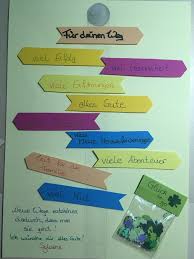 Für deinen Weg
viel Erfolg
viel Gesundheit
viele Erfahrungen
alles Gute
viele neue Herausforderungen
Zeit für die
Familie
viele Abenteuer
viel Mut
Glück
Neue Wege entstehen
dadurch, dass man
sie geht!
Ich wünsche dir alles Gute!